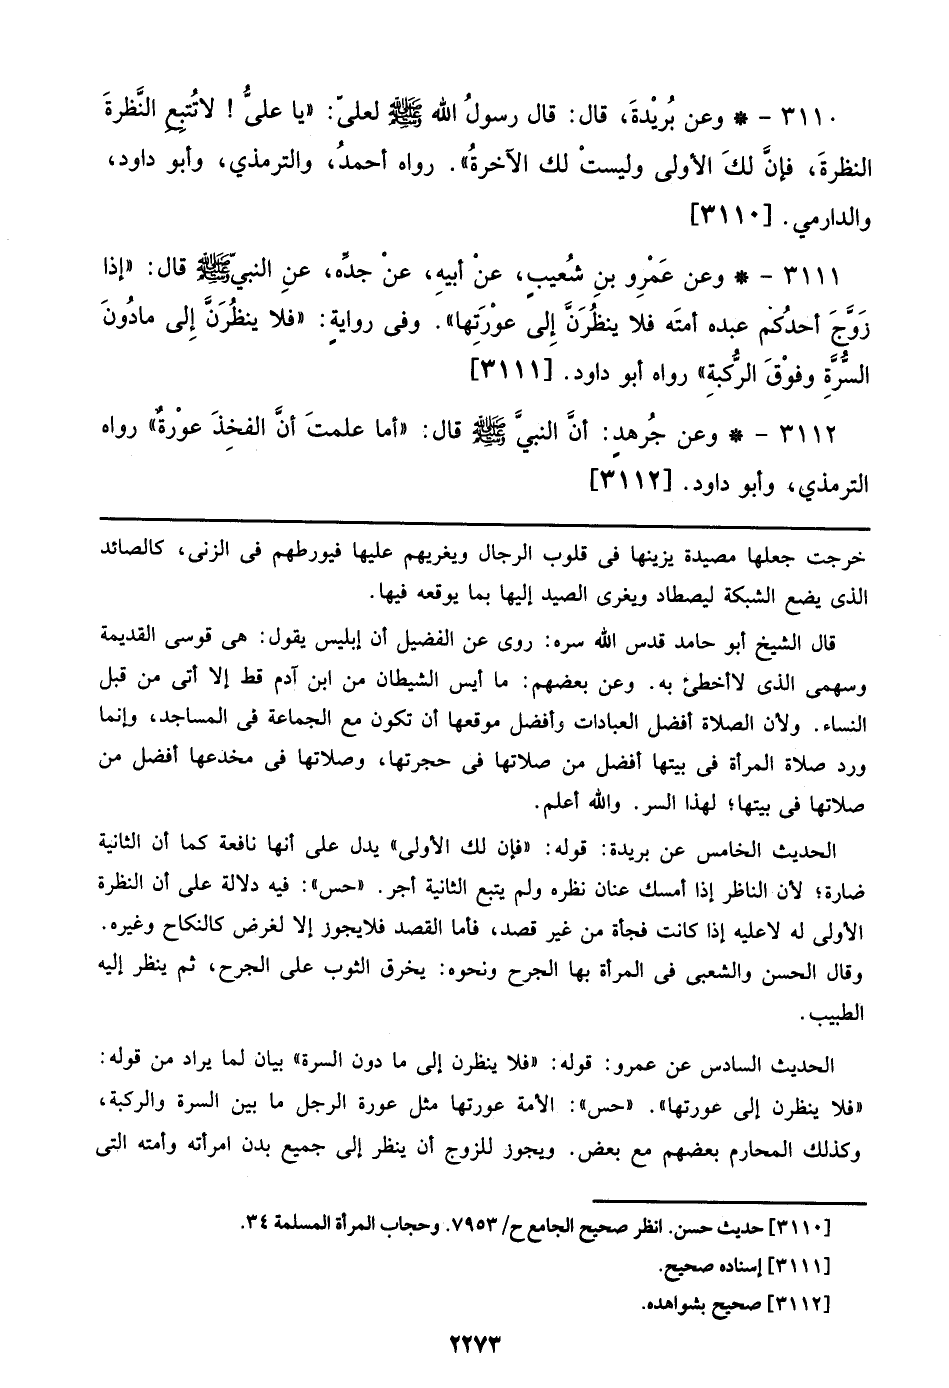 ٣١١٠ – * وعن بُرَيْدةَ، قال: قال رسولُ الله ﷺ لعلىّ: «يا علىُّ ! لاتُتبِعِ النَّظرةَ
النظرةَ، فإنَّ لكَ الأولى وليستْ لك الآخرةُ». رواه أحمدُ، والترمذي، وأبو داود،
والدارمي. [٣١١٠]
٣١١١ – * وعن عَمْرِو بنِ شُعيبٍ، عنْ أبيهِ، عنْ جدِّه، عنِ النبيِّ ﷺ قال: «إذا
زَوَّجَ أحدُكُمْ عبده أمتَه فلا ينظُرَنَّ إلى عوْرَتِها». وفى روايةٍ: «فلا ينظُرَنَّ إلى مادُونَ
السُّرَّةِ وفوْقَ الرُّكبةِ» رواه أبو داود. [٣١١١]
٣١١٢ – * وعن جُرهدٍ: أنَّ النبيَّ ﷺ قال: «أما علمتَ أنَّ الفخِذَ عورْةٌ» رواه
الترمذي، وأبو داود. [٣١١٢]
خرجت جعلها مصيدة يزينها فى قلوب الرجال ويغريهم عليها فيورطهم فى الزنى، كالصائد
الذى يضع الشبكة ليصطاد ويغرى الصيد إليها بما يوقعه فيها.
قال الشيخ أبو حامد قدس الله سره: روى عن الفضيل أن إبليس يقول: هى قوسى القديمة
وسهمى الذى لاأخطئ به. وعن بعضهم: ما أيس الشيطان من ابن آدم قط إلا أتى من قبل
النساء. ولأن الصلاة أفضل العبادات وأفضل موقعها أن تكون مع الجماعة فى المساجد، وإنما
ورد صلاة المرأة فى بيتها أفضل من صلاتها فى حجرتها، وصلاتها فى مخدعها أفضل من
صلاتها فى بيتها؛ لهذا السر. والله أعلم.
الحديث الخامس عن بريدة: قوله: «فإن لك الأولى» يدل على أنها نافعة كما أن الثانية
ضارة؛ لأن الناظر إذا أمسك عنان نظره ولم يتبع الثانية أجر. «حس»: فيه دلالة على أن النظرة
الأولى له لاعليه إذا كانت فجأة من غير قصد، فأما القصد فلايجوز إلا لغرض كالنكاح وغيره.
وقال الحسن والشعبى فى المرأة بها الجرح ونحوه: يخرق الثوب على الجرح، ثم ينظر إليه
الطبيب.
الحديث السادس عن عمرو: قوله: «فلا ينظرن إلى ما دون السرة» بيان لما يراد من قوله:
«فلا ينظرن إلى عورتها». «حس»: الأمة عورتها مثل عورة الرجل ما بين السرة والركبة،
وكذلك المحارم بعضهم مع بعض. ويجوز للزوج أن ينظر إلى جميع بدن امرأته وأمته التى
[٣١١٠] حديث حسن. انظر صحيح الجامع ح/ ٧٩٥٣. وحجاب المرأة المسلمة ٣٤.
[٣١١١] إسناده صحيح.
[٣١١٢] صحيح بشواهده.
٢٢٧٣